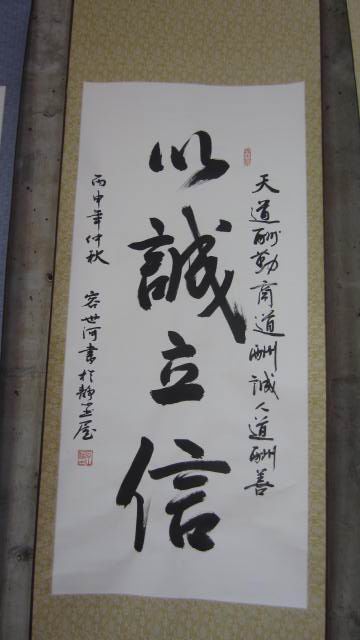 天道酬勤商道酬誠人道酬善
以誠立信
丙申年仲秋 容世河書於靜